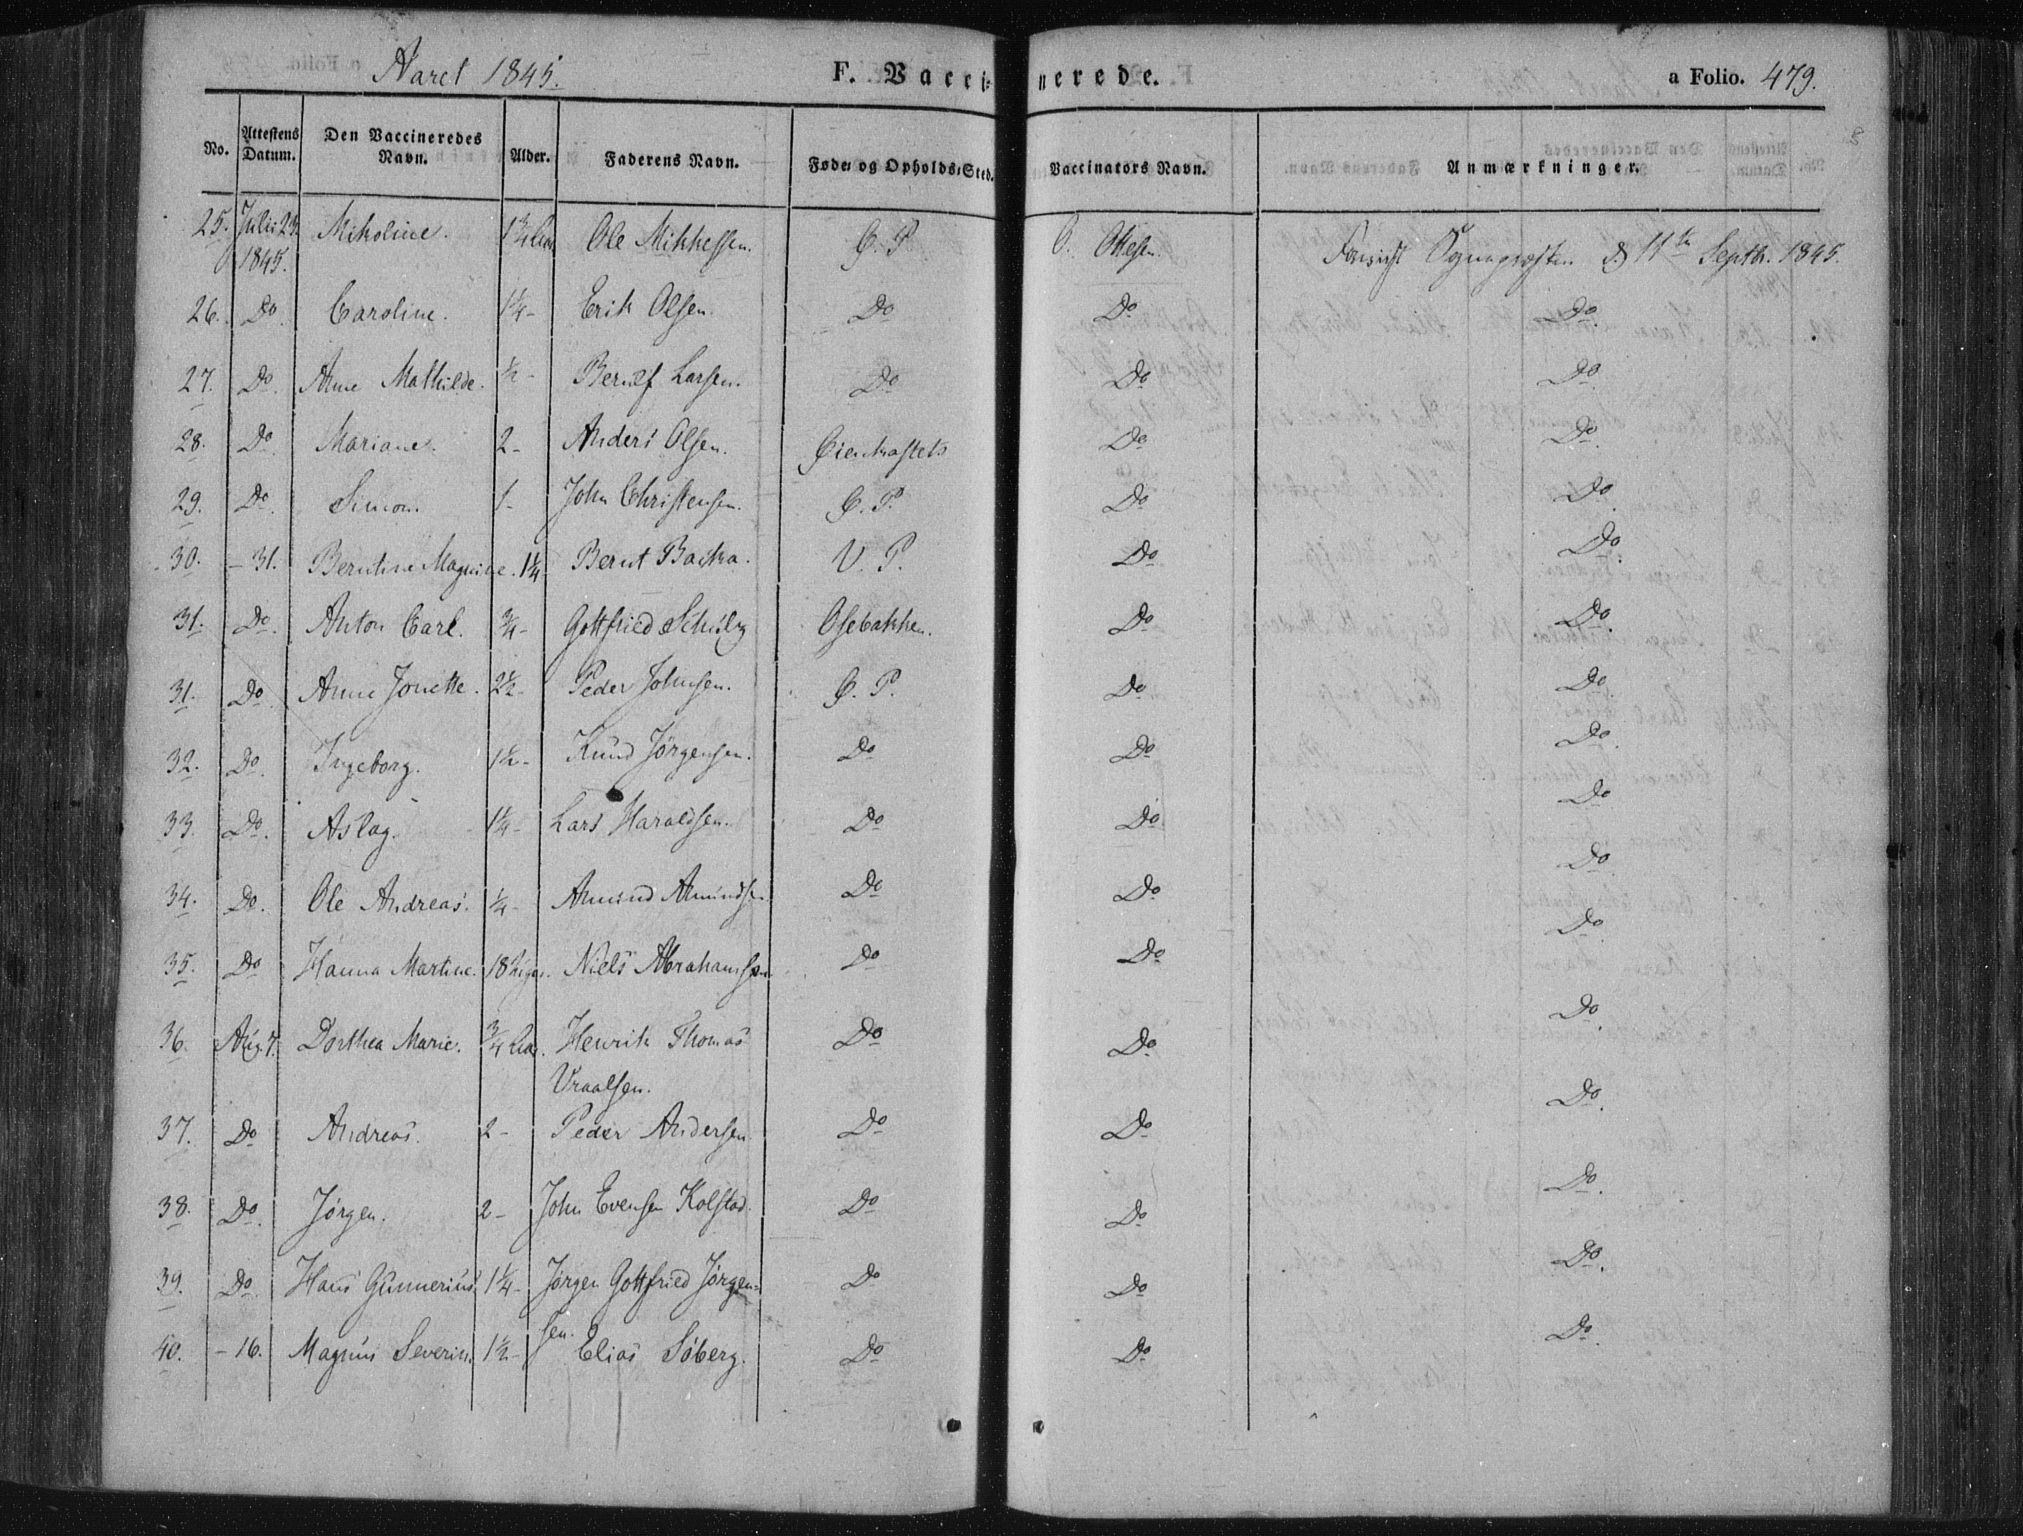 Aaret 1845. F. Vaccinerede. a Folio. 479.
No. Attestens Datum. Den Vaccineredes Navn. Alder. Faderens Navn. Føde- og Opholds-Sted. Vaccinators Navn. Anmærkninger.
25. Julii 23 1845. Nikoline. 1 3/4 Aar Ole Mikkelsen. G. P. O. Ottesen. Foreviist Sognepræsten d) 11te Septbr. 1845.
26. Do. Caroline. 1 1/4 - Erik Olsen. Do Do. Do.
27. Do. Anne Mathilde. 1/2 - Berulf Larsen. Do Do Do.
28. Do. Mariane. 2 - Anders Olsen. Do Do.
29. Do. Simon. 1 - John Christensen. G. P. Do Do.
30. - 31. Berntine Magnine. 1 1/4 Bernt Backa. V. P. Do Do.
31. Do. Anton Carl. 3/4 - Gottfried Schulz Osebakken. Do Do.
31. Do Anne Jonette. 2 1/2 - Peder Johnsen. G. P. Do Do.
32. Do. Ingeborg. 1 1/2 - Knud Jörgensen. Do Do Do.
33. Do. Aslag. 1 1/4 - Lars Haraldsen. Do Do Do
34. Do. Ole Andreas. 1/4 - Amund Amundsen. Do Do. Do
35. Do Hanna Martine. 18 Uger. Niels Abrahamsen Do Do Do
36. Aug. 7. Dorthea Marie. 3/4 Aar. Henrik Thomas Do Do Do.
Vraalsen.
37. Do Andreas. 2 - Peder Andersen Do Do Do.
38. Do. Jørgen. 2 - John Evensen Kolstad. Do Do Do.
39. Do. Hans Gunnerius 1 1/4 - Jørgen Gottfried Jørgen- Do Do Do.
sen.
40. - 16. Magnus Severin. 1 1/2 - Elias Söberg. Do Do Do.